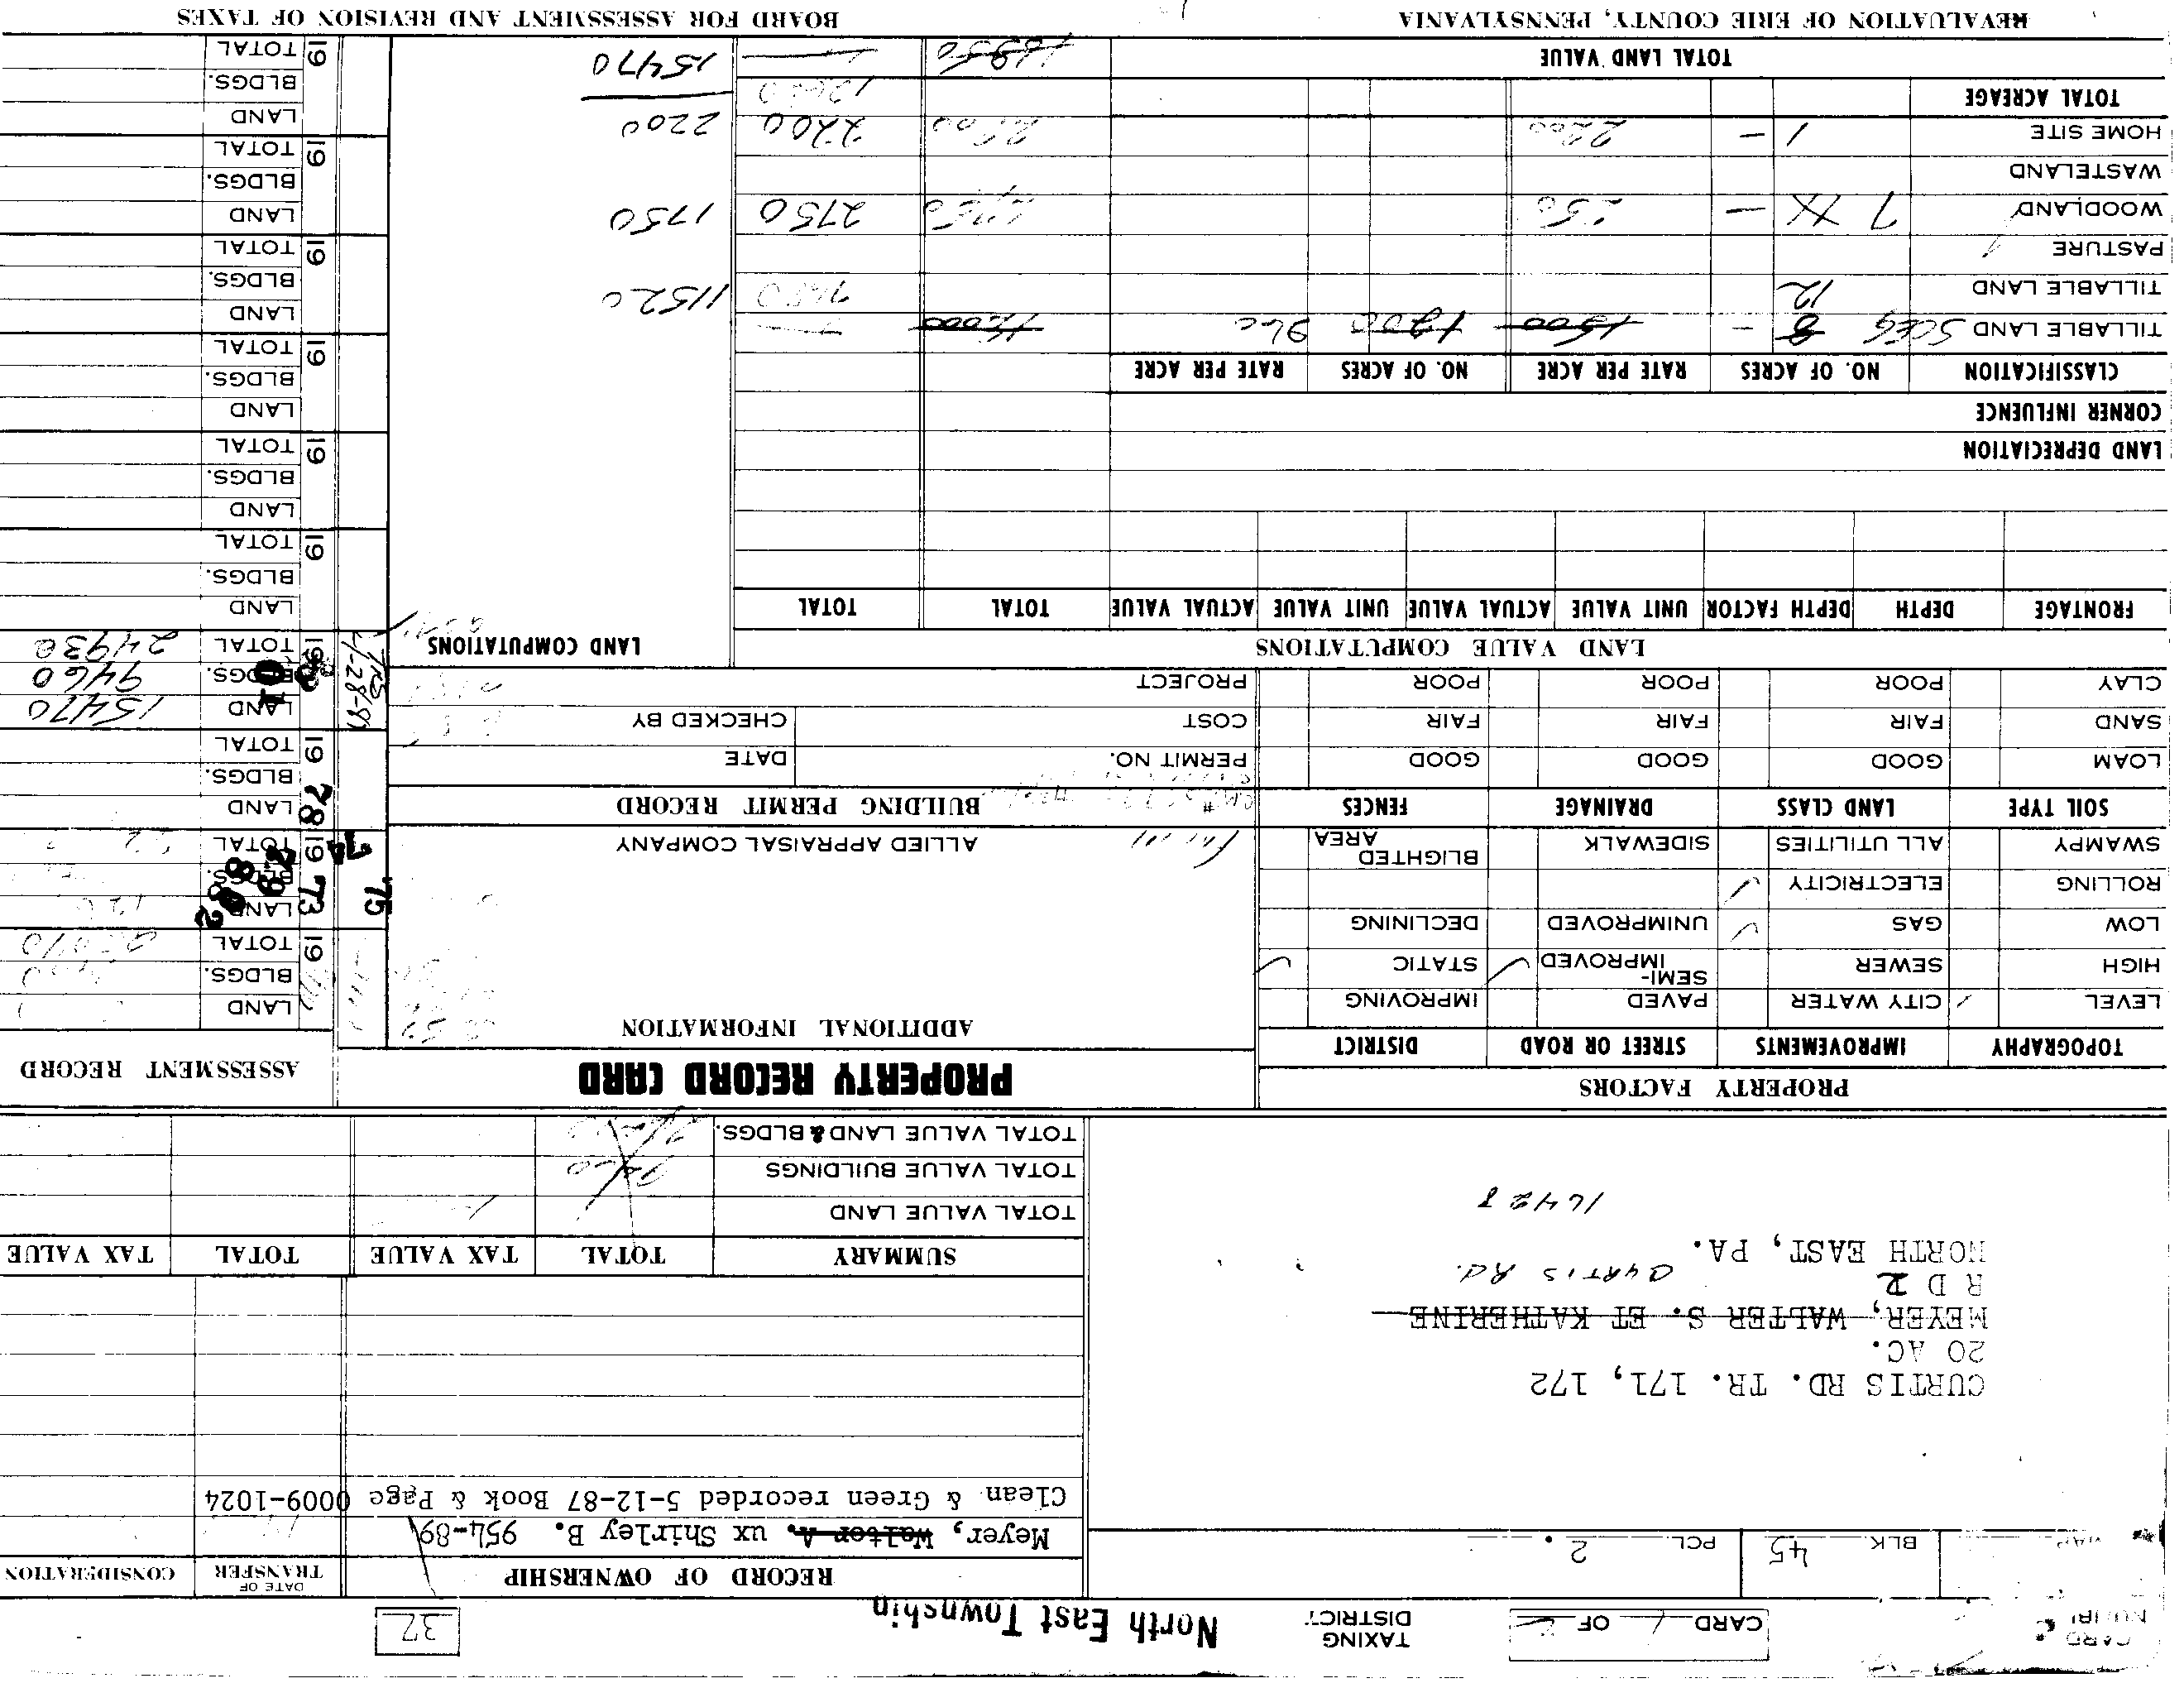 CARD
CARD 1 OF 2
TAXING DISTRICT
North East Township
32
BLK 45
PCL 2.
RECORD OF OWNERSHIP
DATE OF TRANSFER
CONSIDERATION
Meyer, Walter A. ux Shirley B. 954-89
Clean & Green recorded 5-12-87 Book & Page 0009-1024
CURTIS RD. TR. 171, 172
20 AC.
MEYER, WALTER S. ET KATHERINE
R D 2 CURTIS Rd.
NORTH EAST, PA.
16428
SUMMARY TOTAL TAX VALUE TOTAL TAX VALUE
TOTAL VALUE LAND
TOTAL VALUE BUILDINGS
TOTAL VALUE LAND & BLDGS.
PROPERTY FACTORS
PROPERTY RECORD CARD
ASSESSMENT RECORD
TOPOGRAPHY IMPROVEMENTS STREET OR ROAD DISTRICT
LEVEL ✓ CITY WATER PAVED IMPROVING
HIGH SEWER SEMI-IMPROVED ✓ STATIC ✓
LOW GAS ✓ UNIMPROVED DECLINING
ROLLING ELECTRICITY ✓
SWAMPY ALL UTILITIES SIDEWALK BLIGHTED AREA
SOIL TYPE LAND CLASS DRAINAGE FENCES
LOAM GOOD GOOD GOOD
SAND FAIR FAIR FAIR
CLAY POOR POOR POOR
ADDITIONAL INFORMATION
Farm
ALLIED APPRAISAL COMPANY
BUILDING PERMIT RECORD
PERMIT NO. DATE
COST CHECKED BY
PROJECT
LAND
BLDGS.
19 TOTAL
LAND
BLDGS.
19 TOTAL
73 74 75
78 79
LAND
BLDGS.
19 TOTAL
LAND 15470
BLDGS. 9460
19 TOTAL 24930
LAND VALUE COMPUTATIONS
LAND COMPUTATIONS
FRONTAGE DEPTH DEPTH FACTOR UNIT VALUE ACTUAL VALUE UNIT VALUE ACTUAL VALUE TOTAL TOTAL
LAND DEPRECIATION
CORNER INFLUENCE
CLASSIFICATION NO. OF ACRES RATE PER ACRE NO. OF ACRES RATE PER ACRE
TILLABLE LAND 8 - 1500 1200 960 12000
TILLABLE LAND 12 11520
PASTURE
WOODLAND 7 - 250 2750 2750 1750
WASTELAND
HOME SITE 1 - 2200 2200 2200 2200
TOTAL ACREAGE
TOTAL LAND VALUE 15470
LAND
BLDGS.
19 TOTAL
LAND
BLDGS.
19 TOTAL
LAND
BLDGS.
19 TOTAL
LAND
BLDGS.
19 TOTAL
LAND
BLDGS.
19 TOTAL
LAND
BLDGS.
19 TOTAL
REVALUATION OF ERIE COUNTY, PENNSYLVANIA
BOARD FOR ASSESSMENT AND REVISION OF TAXES